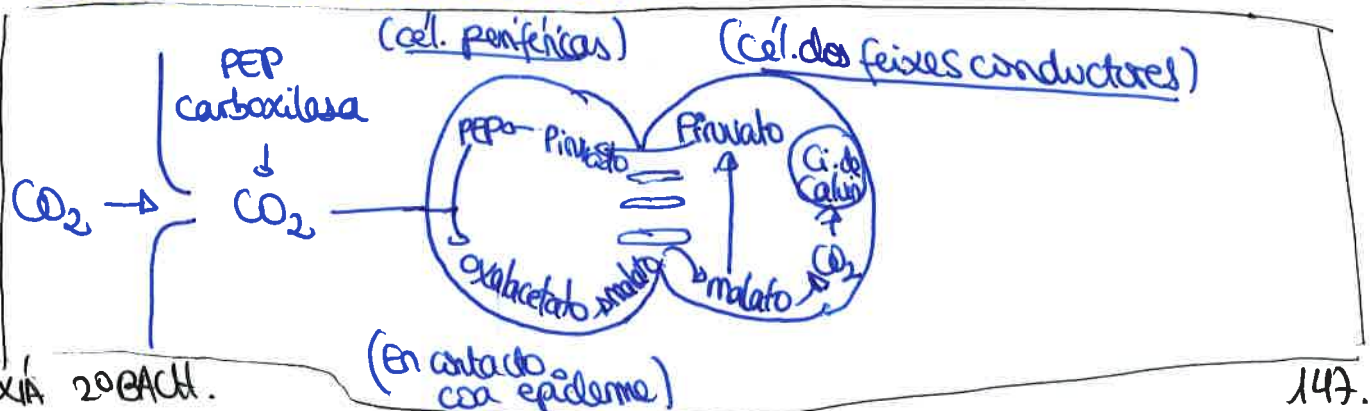 (cél. periféricas)
(cél. dos feixes conductores)
PEP
carboxilasa
PEP
Piruvato
Piruvato
Ci. de
Calvin
CO₂
CO₂
CO₂
oxalacetato
malato
malato
(En contacto
coa epiderme)
XÍA 2º BACH.
147.